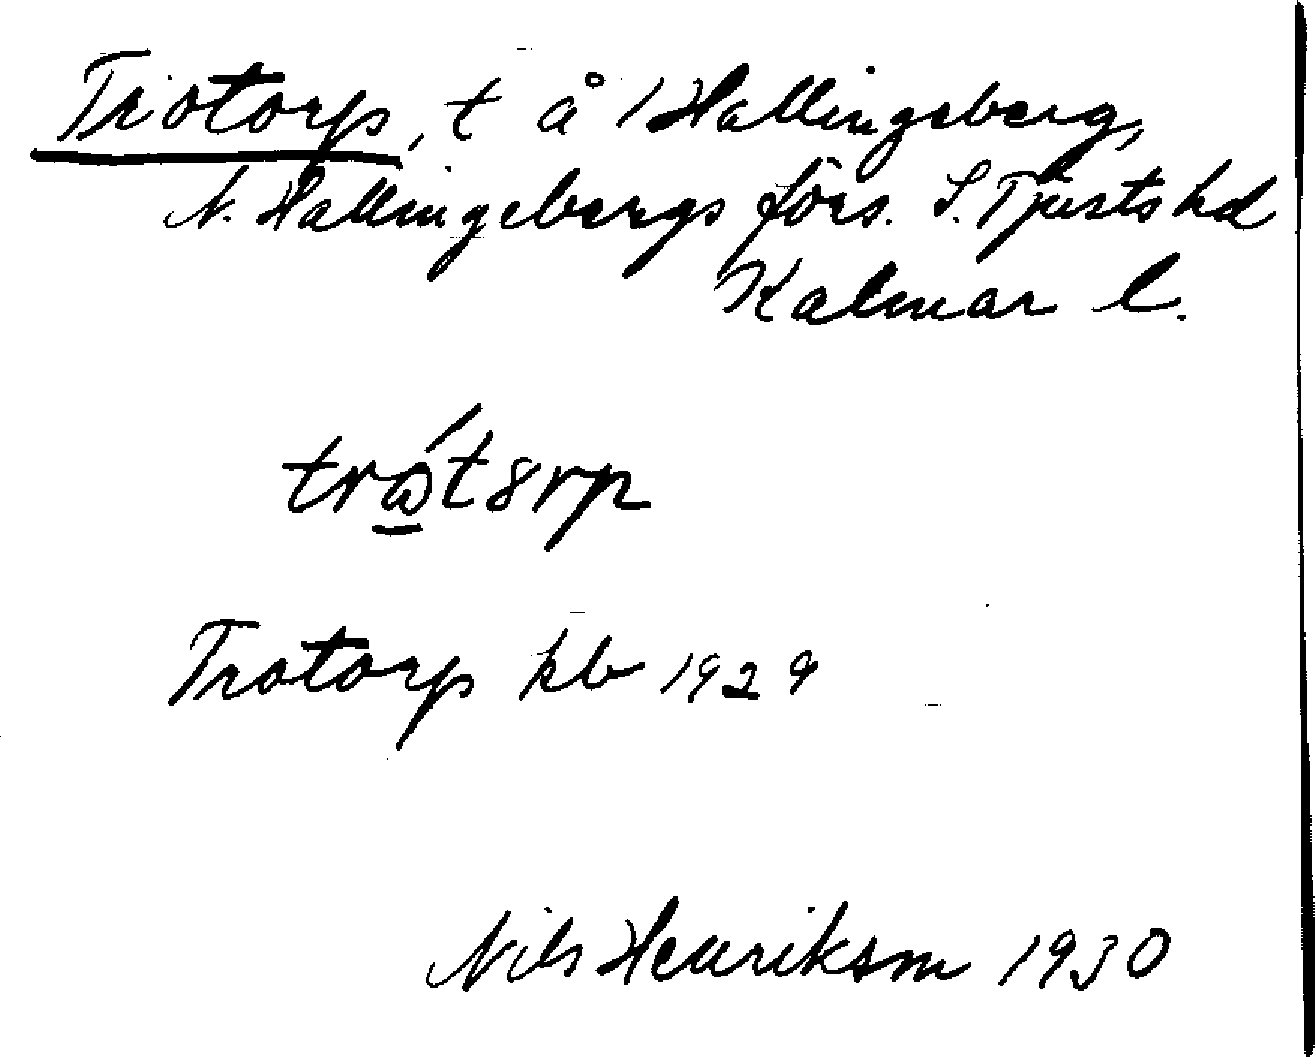 Trotorp, t å 1 Hallingeberg,
N. Hallingebergs förs. S. Tjusts hd
Kalmar l.
trótorp
Trotorp kb 1929
Nils Henriksson 1930